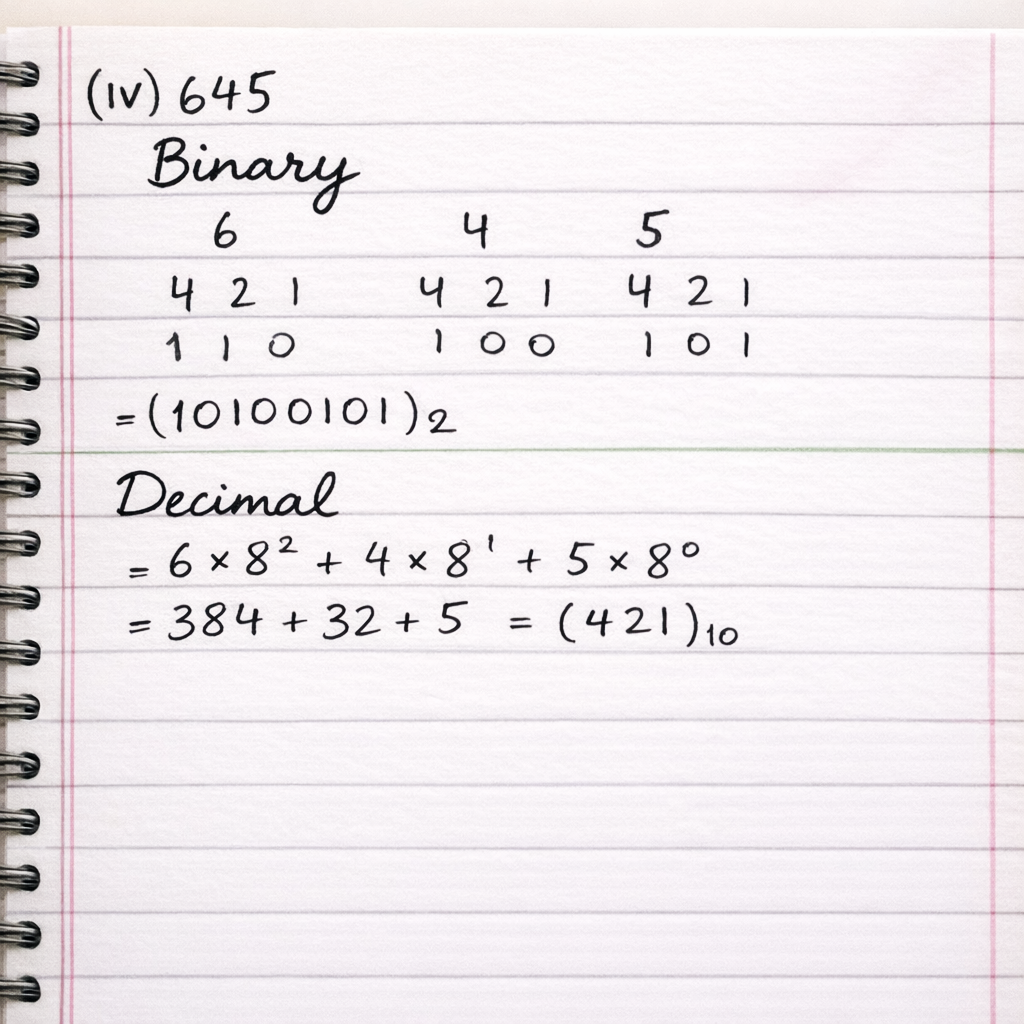 (IV) 645
Binary
6 4 5
4 2 1 4 2 1 4 2 1
1 1 0 1 0 0 1 0 1
= (10100101)₂
Decimal
= 6 × 8² + 4 × 8¹ + 5 × 8⁰
= 384 + 32 + 5 = (421)₁₀